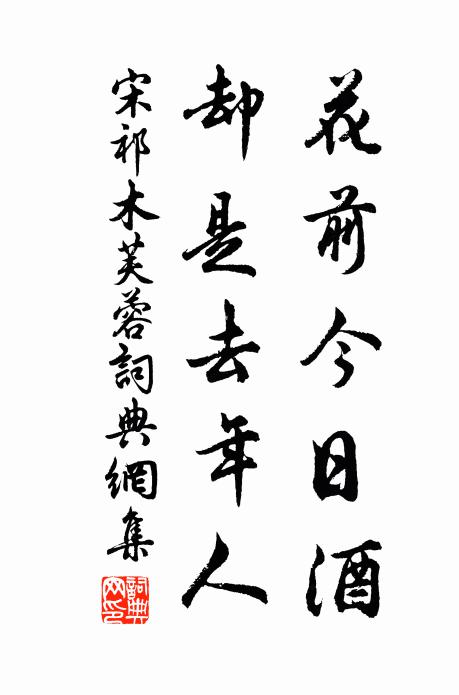 花前今日酒
却是去年人
宋祁木芙蓉詞典網集
詞典網印